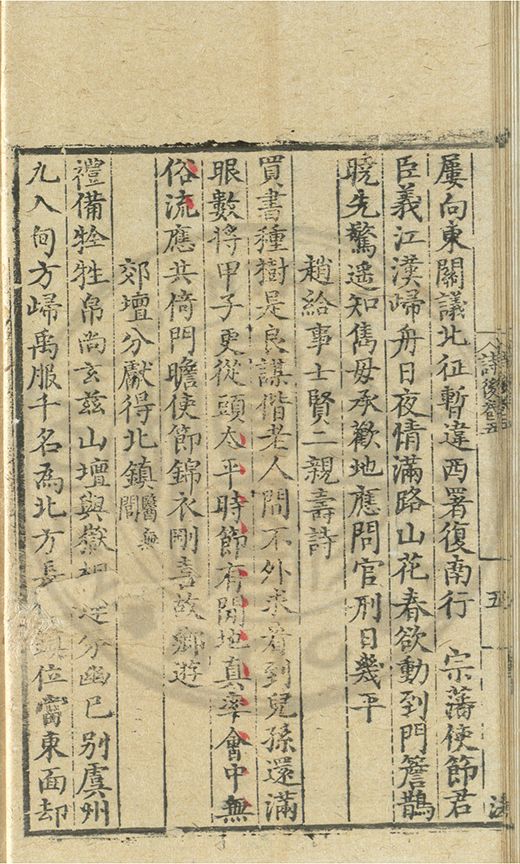 屢向東關議北征暫違西署復南行 宗藩使節君
臣義江漢歸舟日夜情滿路山花春欲動到門簷鵲
曉先驚遥知雋母承歡地應問官刑日幾平
趙給事士賢二親壽詩
買書種樹是良謀偕老人間不外求看到兒孫還滿
眼數將甲子更從頭太平時節有閒地真率會中無
俗流應共倚門瞻使節錦衣剛喜故鄉遊
郊壇分獻得北鎮醫無閭
禮備牲牷帛尚玄兹山壇與嶽相連分幽已别虞州
九入甸方歸禹服千名為北方長鎮位當東面却
詩後卷五
五